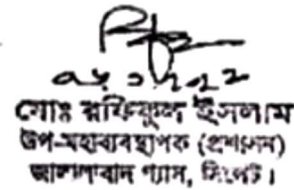 মোঃ রফিকুল ইসলাম
উপ-মহাব্যবস্থাপক (প্রশাসন)
জালালাবাদ গ্যাস, সিলেট।